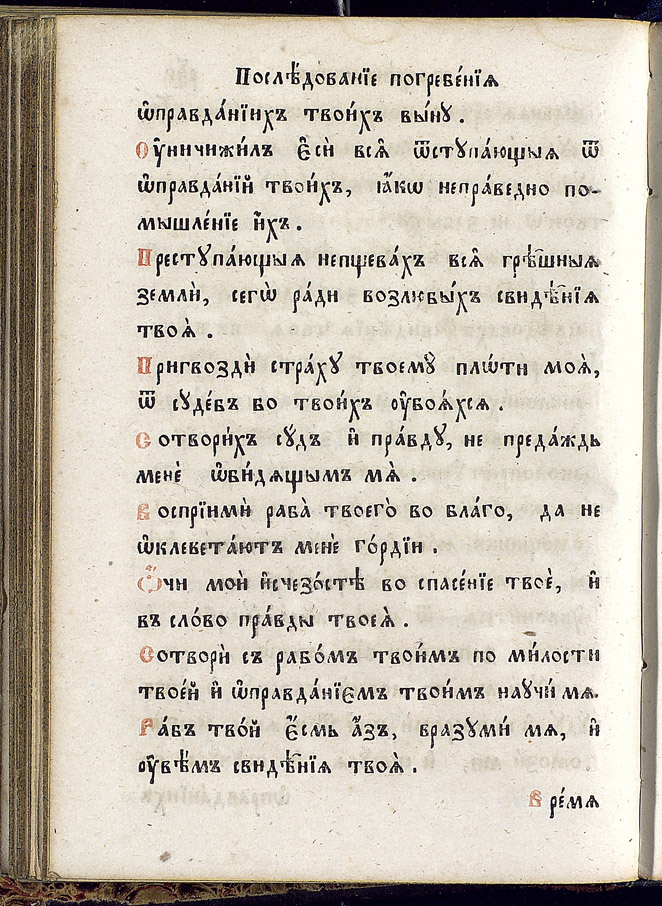 Послѣ́дованїе погребе́нїѧ
ѡ҆правда́нїихъ твои́хъ вы́нꙋ .
Оу҆ничижи́лъ є҆сѝ всѧ̑ ѿстꙋпа́ющыѧ ѿ
ѡ҆правда́нїй твои́хъ, ꙗ҆́кѡ непра́ведно по-
мышле́нїе и҆́хъ .
Престꙋпа́ющыѧ непщева́хъ всѧ̑ грѣ̑шныѧ
землѝ, сегѡ̀ ра́ди возлюбы́хъ свидѣ̑нїѧ
твоѧ̑ .
Пригвоздѝ стра́хꙋ твоемꙋ̀ плѡ́ти моѧ̑,
ѿ сꙋде́бъ бо твои́хъ оу҆боѧ́хсѧ .
Сотвори́хъ сꙋ́дъ и҆ пра́вдꙋ, не преда́ждь
менѐ ѡ҆би́дѧщымъ мѧ̀ .
Воспрїимѝ раба̀ твоего̀ во бла́го, да не
ѡ҆клевета́ютъ менѐ го́рдїи .
Ѻ҆́чи моѝ и҆счезо́стѣ во спасе́нїе твоѐ, и҆
въ сло́во пра́вды твоеѧ̀ .
Сотворѝ съ рабо́мъ твои́мъ по ми́лости
твое́й и҆ ѡ҆правда́нїємъ твои́мъ наꙋчи́ мѧ.
Ра́бъ тво́й є҆́смь а҆́зъ, вразꙋми́ мѧ, и҆
оу҆вѣ́мъ свидѣ̑нїѧ твоѧ̑ .
Вре́мѧ